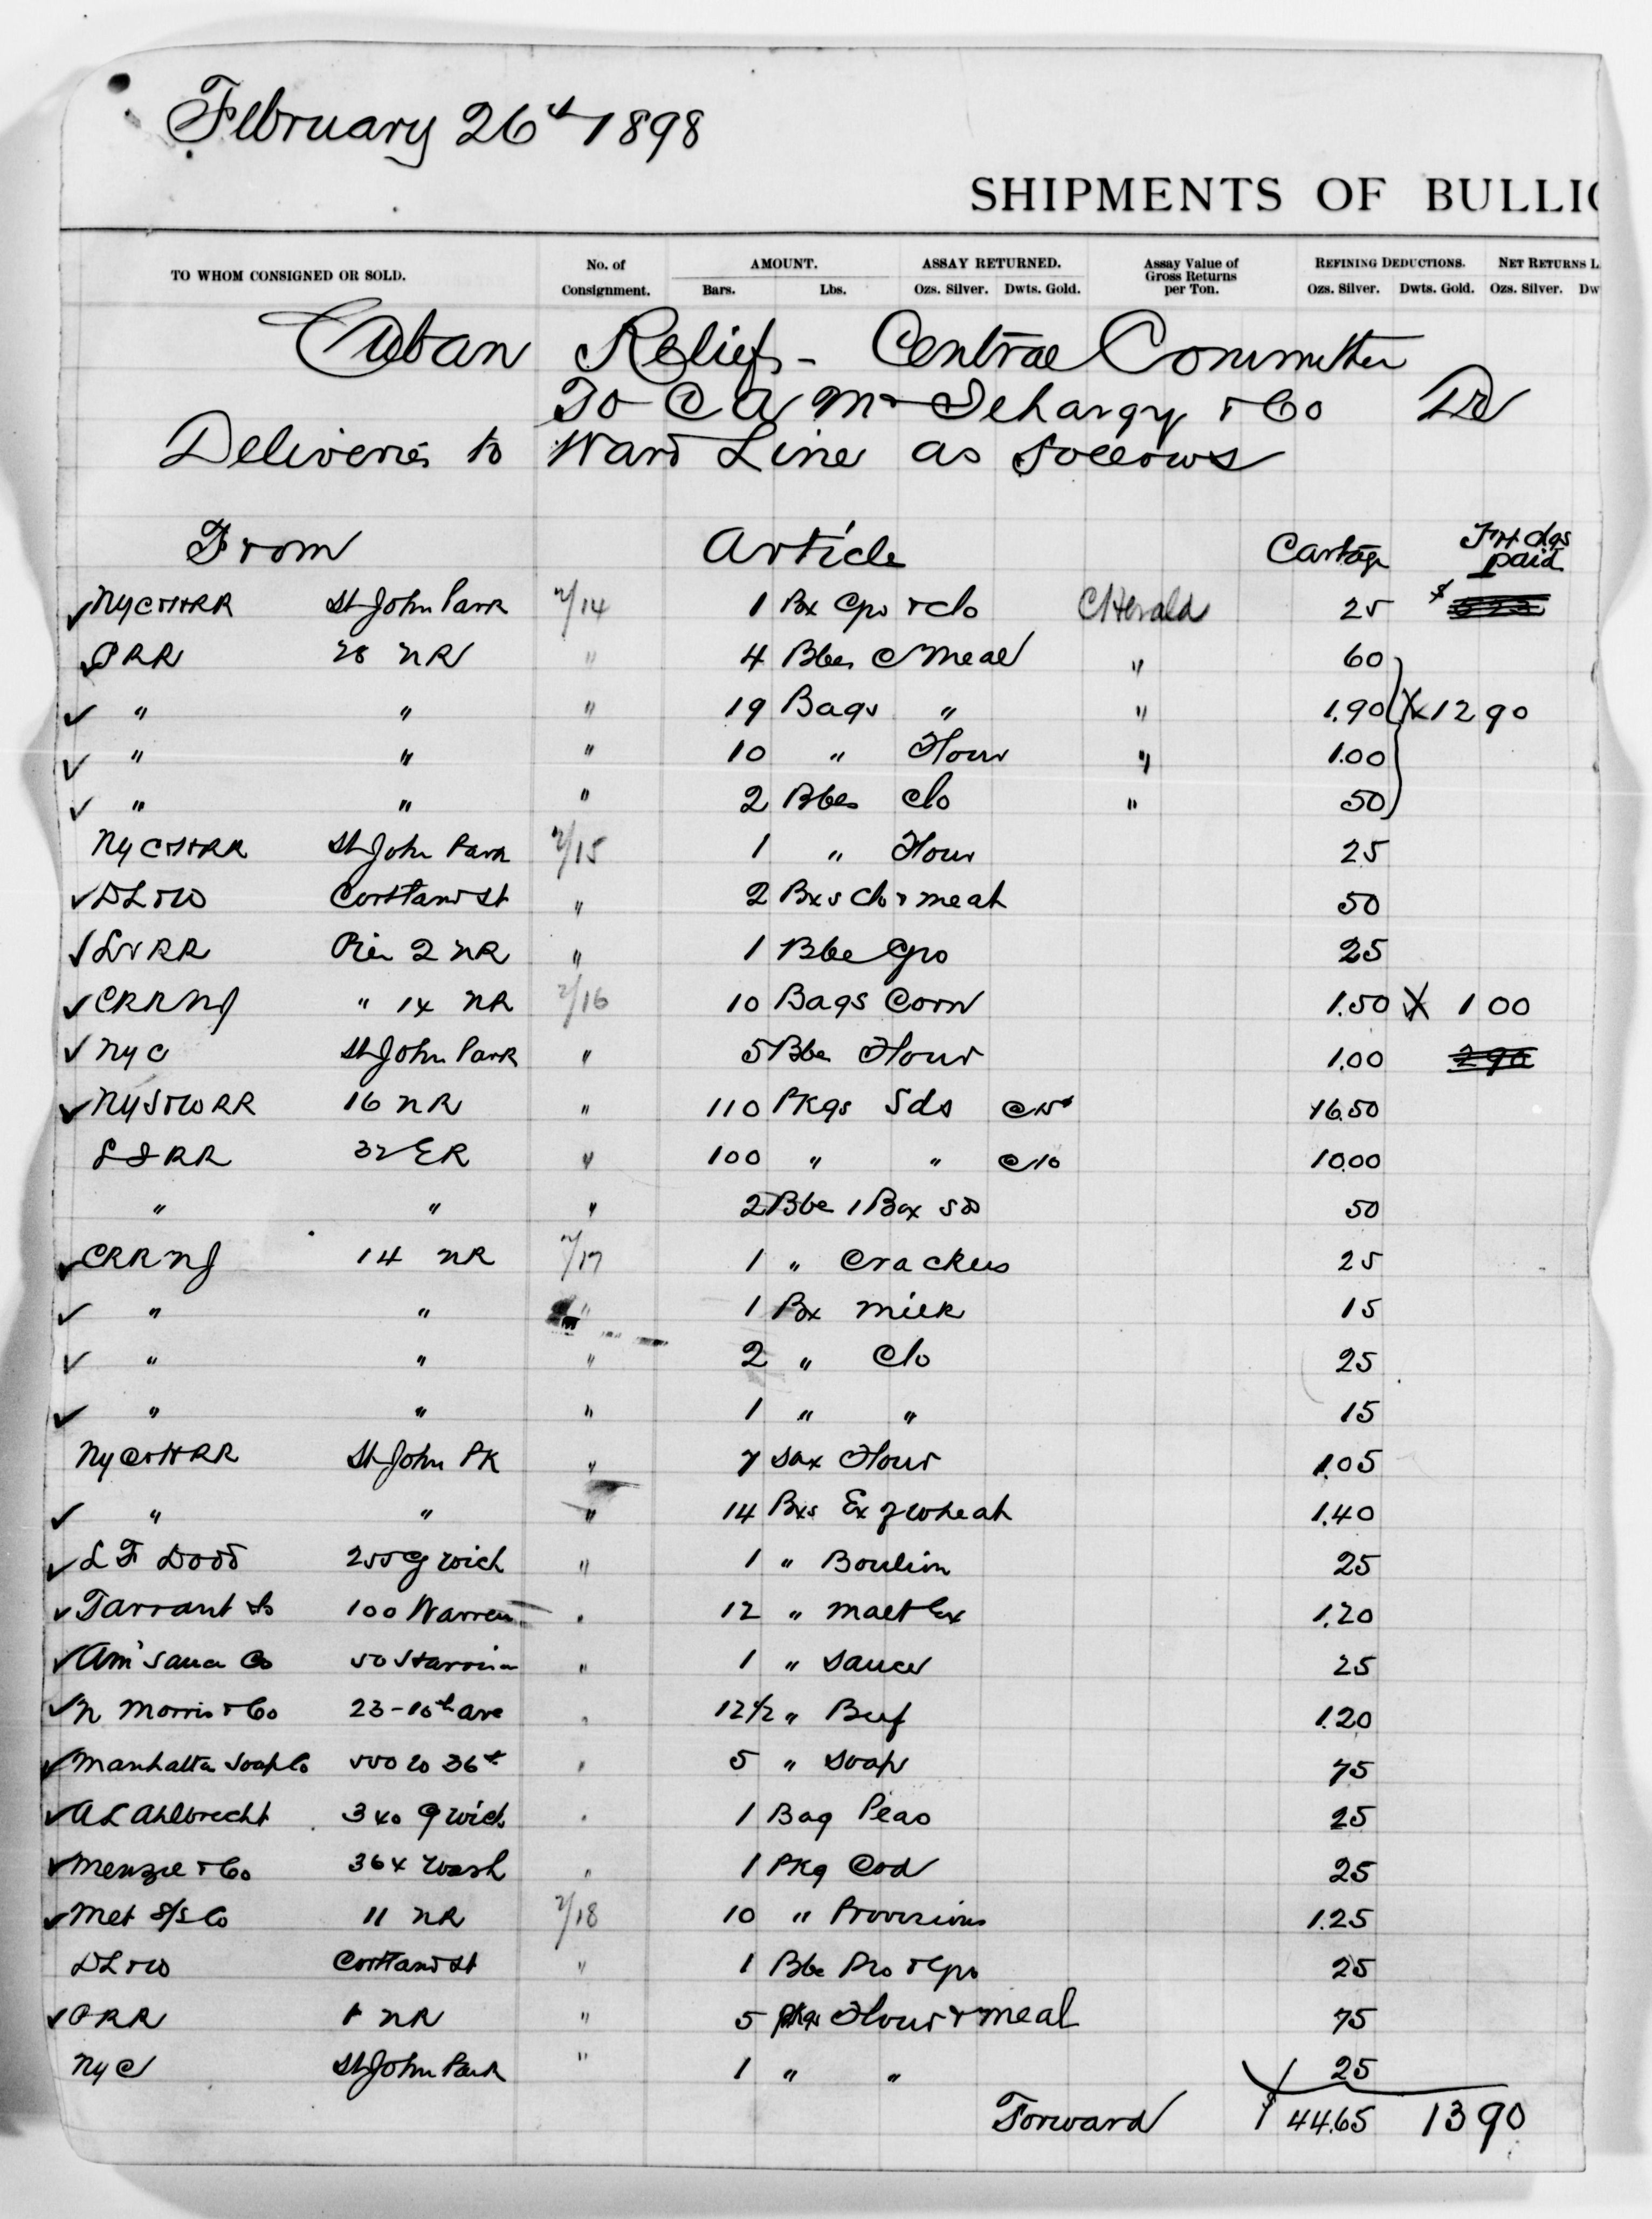 February 26th 1898
SHIPMENTS OF BULLIO
TO WHOM CONSIGNED OR SOLD. No. of Consignment. AMOUNT. Bars. Lbs. ASSAY RETURNED. Ozs. Silver. Dwts. Gold. Assay Value of Gross Returns per Ton. REFINING DEDUCTIONS. Ozs. Silver. Dwts. Gold. NET RETURNS L Ozs. Silver. Dw
Cuban Relief - Central Committee
To C A & Co Dr
Deliveries to Ward Line as follows
From Article Cartage Frt chgs paid
✓ NYC&HRR St John Park 2/14 1 Bx Gro & Clo C Herald 25 $
✓ PRR 28 NR " 4 Bbls C Meal " 60
✓ " " " 19 Bags " " 1.90 X 12 90
✓ " " " 10 " Flour " 1.00
✓ " " " 2 Bbls Clo " 50
NYC&HRR St John Park 2/15 1 " Flour 25
✓ DL&W Cortland St " 2 Bxs Clo & meat 50
✓ LVRR Pier 2 NR " 1 Bbl Gro 25
✓ CRRNJ " 14 NR 2/16 10 Bags Corn 1.50 X 1 00
✓ NYC St John Park " 5 Bbl Flour 1.00 290
✓ NYS&WRR 16 NR " 110 Pkgs Sds @ 15¢ 16.50
LIRR 32 ER " 100 " " @ 10 10.00
" " " 2 Bbl 1 Box Sds 50
✓ CRRNJ 14 NR 2/17 1 " Crackers 25
✓ " " " 1 Bx milk 15
✓ " " " 2 " Clo 25
✓ " " " 1 " " 15
NYC&HRR St John PK " 7 Sax Flour 1.05
✓ " " " 14 Bxs Ex of Wheat 1.40
✓ L F Dodd 255 G wich " 1 " Boulion 25
✓ Tarrant & Co 100 Warren " 12 " malt Ex 1.20
✓ Am Sauce Co 50 Harrison " 1 " Sauce 25
✓ N Morris & Co 23-10th ave " 12 1/2 " Beef 1.20
✓ Manhattan Soap Co 550 W 36th " 5 " Soap 75
✓ A L Ahlbrecht 340 G wich " 1 Bag Peas 25
✓ Menzie & Co 364 Wash " 1 Pkg Cod 25
✓ Met S/S Co 11 NR 2/18 10 " Provisions 1.25
DL&W Cortland St " 1 Bbl Pro & Gro 25
✓ PRR 1 NR " 5 pkgs Flour & meal 75
NYC St John Park " 1 " " 25
Forward $ 44.65 13 90